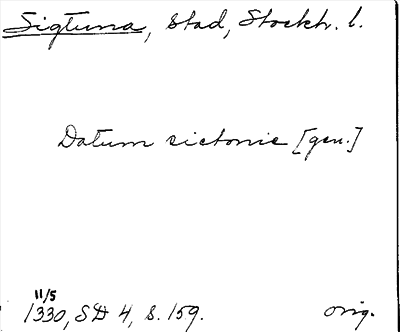 Sigtuna, stad, Stockh. l.
Datum sictonie [gen.]
11/5
1330, SD 4, s. 159.
orig.